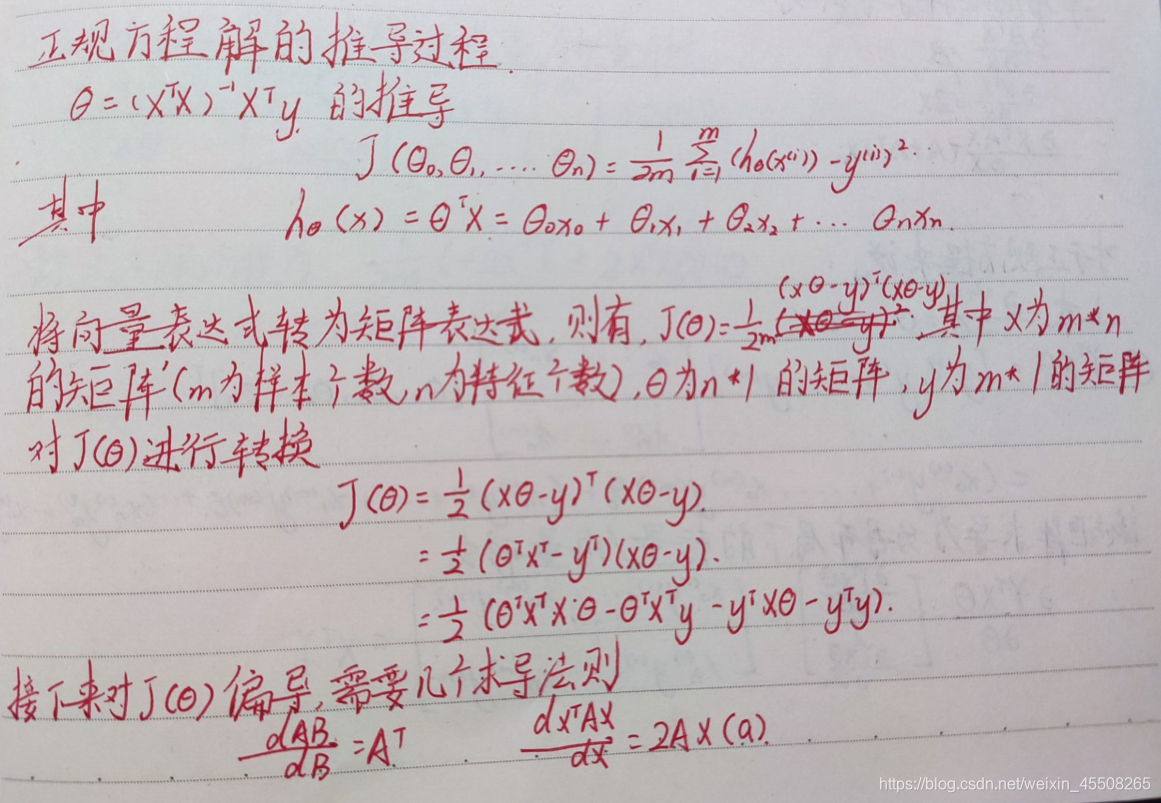 正规方程解的推导过程.
θ = (XᵀX)⁻¹Xᵀy 的推导
J(θ₀,θ₁,....θₙ) = \frac{1}{2m} \sum_{i=1}^{m} (hθ(x⁽ⁱ⁾) - y⁽ⁱ⁾)².
其中 hθ(x) = θᵀX = θ₀x₀ + θ₁x₁ + θ₂x₂ + ... θₙxₙ.
将向量表达式转为矩阵表达式, 则有, J(θ) = \frac{1}{2m} (xθ-y)ᵀ(xθ-y) 其中 x为 m*n
的矩阵(m为样本个数, n为特征个数), θ为n*1 的矩阵, y为m*1的矩阵
对J(θ)进行转换
J(θ) = \frac{1}{2} (xθ-y)ᵀ(xθ-y).
= \frac{1}{2} (θᵀxᵀ-yᵀ)(xθ-y).
= \frac{1}{2} (θᵀxᵀxθ - θᵀxᵀy - yᵀxθ - yᵀy).
接下来对J(θ)偏导, 需要几个求导法则
\frac{dAB}{dB} = Aᵀ \frac{dxᵀAx}{dx} = 2AX(a)
https://blog.csdn.net/weixin_45508265